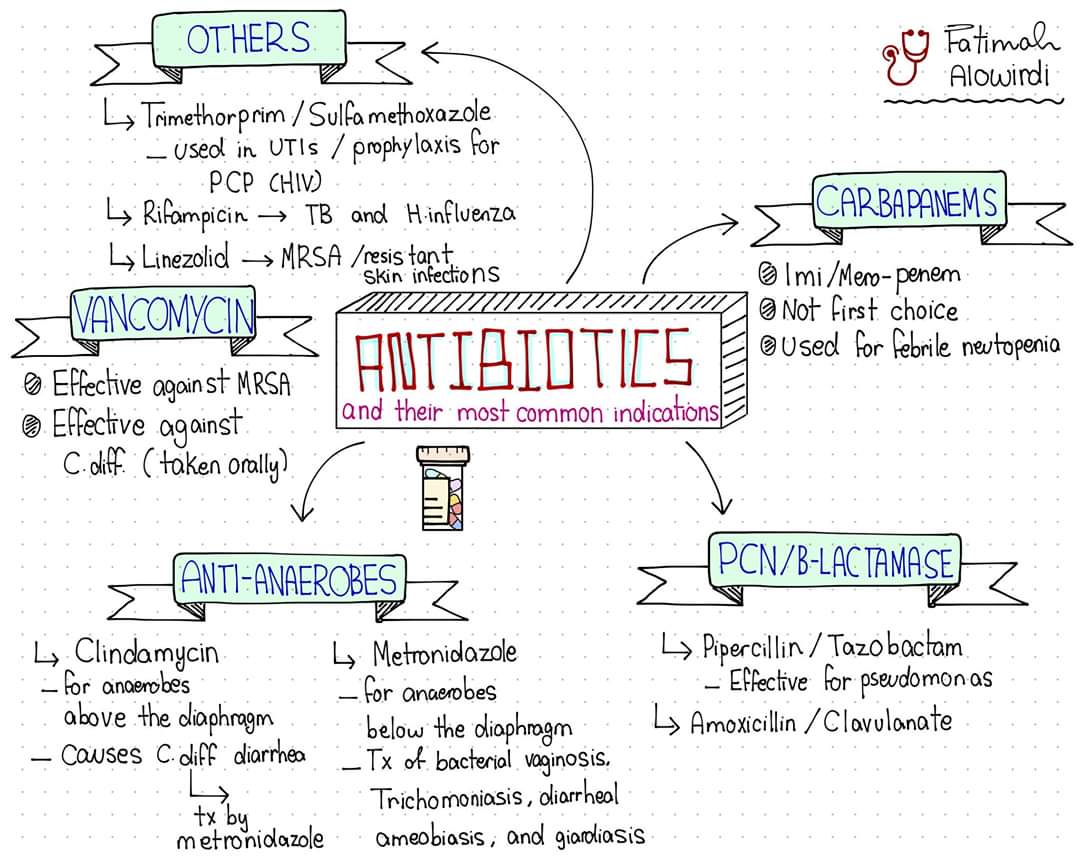 OTHERS
Trimethorprim / Sulfamethoxazole
– used in UTIs / prophylaxis for
PCP (HIV)
Rifampicin → TB and H.influenza
Linezolid → MRSA /resistant
skin infections
Fatimah
Alowirdi
CARBAPANEMS
Imi/Mero-penem
Not first choice
Used for febrile neutopenia
VANCOMYCIN
Effective against MRSA
Effective against
C.diff. (taken orally)
ANTIBIOTICS
and their most common indications
ANTI-ANAEROBES
Clindamycin
– for anaerobes
above the diaphragm
– Causes C.diff diarrhea
tx by
metronidazole
Metronidazole
– for anaerobes
below the diaphragm
– Tx of bacterial vaginosis,
Trichomoniasis, diarrheal
ameobiasis, and giardiasis
PCN/B-LACTAMASE
Pipercillin / Tazobactam
– Effective for pseudomonas
Amoxicillin / Clavulanate